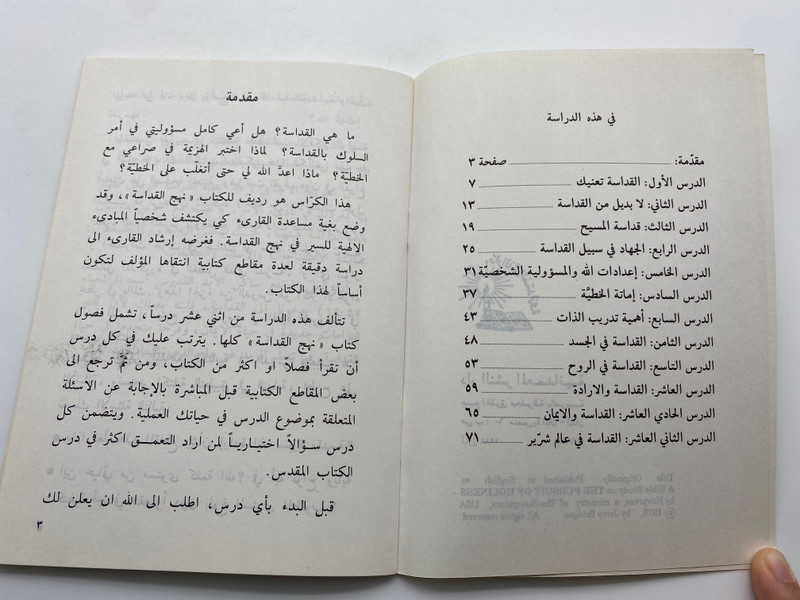 في هذه الدراسة
مقدّمة: صفحة ٣
الدرس الأول: القداسة تعنيك ٧
الدرس الثاني: لا بديل من القداسة ١٣
الدرس الثالث: قداسة المسيح ١٩
الدرس الرابع: الجهاد في سبيل القداسة ٢٥
الدرس الخامس: إعدادات الله والمسؤولية الشخصيّة ٣١
الدرس السادس: إماتة الخطيَّة ٣٧
الدرس السابع: أهمية تدريب الذات ٤٣
الدرس الثامن: القداسة في الجسد ٤٨
الدرس التاسع: القداسة في الروح ٥٣
الدرس العاشر: القداسة والارادة ٥٩
الدرس الحادي العاشر: القداسة والايمان ٦٥
الدرس الثاني العاشر: القداسة في عالم شرّير ٧١
مقدمة
ما هي القداسة؟ هل أعي كامل مسؤوليتي في أمر
السلوك بالقداسة؟ لماذا اختبر الهزيمة في صراعي مع
الخطيّة؟ ماذا اعدَّ الله لي حتى أتغلّب على الخطيّة؟
هذا الكرّاس هو رديف للكتاب «نهج القداسة»، وقد
وضع بغية مساعدة القارىء كي يكتشف شخصياً المبادىء
الالهية للسير في نهج القداسة. فغرضه إرشاد القارىء الى
دراسة دقيقة لعدة مقاطع كتابية انتقاها المؤلف لتكون
أساساً لهذا الكتاب.
تتألف هذه الدراسة من اثني عشر درساً، تشمل فصول
كتاب «نهج القداسة» كلها. يترتب عليك في كل درس
أن تقرأ فصلاً او اكثر من الكتاب، ومن ثَمَّ ترجع الى
بعض المقاطع الكتابية قبل المباشرة بالإجابة عن الاسئلة
المتعلقة بموضوع الدرس في حياتك العملية. ويتضمن كل
درس سؤالاً اختيارياً لمن اراد التعمق اكثر في درس
الكتاب المقدس.
قبل البدء بأي درس، اطلب الى الله ان يعلن لك
٣